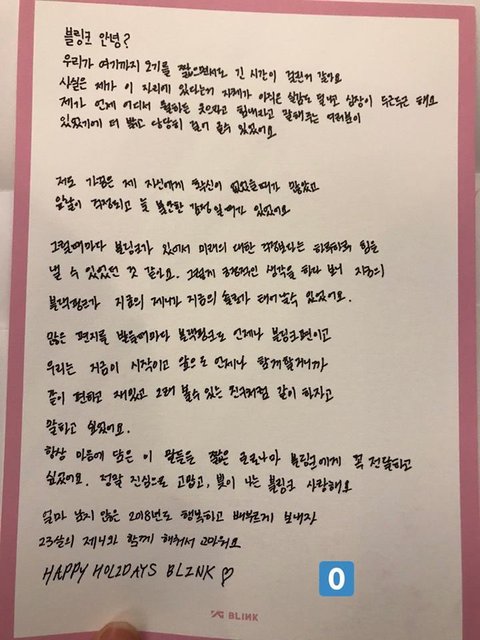 블링크 안녕?
우리가 여기까지 오기를 짧으면서도 긴 시간이 걸린거 같아요
사실은 제가 이 자리에 있다는게 자체가 아직은 실감도 덜나고 심장이 두근두근 해요
제가 언제 어디서 뭘하든 옷으라고 힘내라고 말해주는 여러분이
있었기에 더 밝고 당당히 걸어 올수 있었어요
저도 가끔은 제 자신에게 확신이 없었을때가 많았고
앞날이 걱정되고 늘 불안한 감정일때가 있었어요
그럴때마다 블링크가 있어서 미래의 대한 걱정보다는 하루하루 힘을
낼 수 있었던 것 같아요. 그렇게 긍정적인 생각을 하다 보니 지금의
블랙핑크가 지금의 제니가 지금의 솔로가 태어날수 있었어요.
많은 편지를 받을때마다 블랙핑크도 언제나 블링크편이고
우리는 지금이 시작이고 앞으로 언제나 함께할거니까
같이 편하고 재밌고 오래 볼수 있는 친구처럼 같이 하자고
말하고 싶었어요.
항상 마음에 담은 이 말들을 짧은 글로나마 블링크에게 꼭 전달하고
싶었어요. 정말 진심으로 고맙고, 빛이 나는 블링크 사랑해요
얼마 남지 않은 2018년도 행복하고 배부르게 보내자
23살의 제니와 함께 해줘서 고마워요
HAPPY HOLIDAYS BLINK ♡
0
YG BLINK